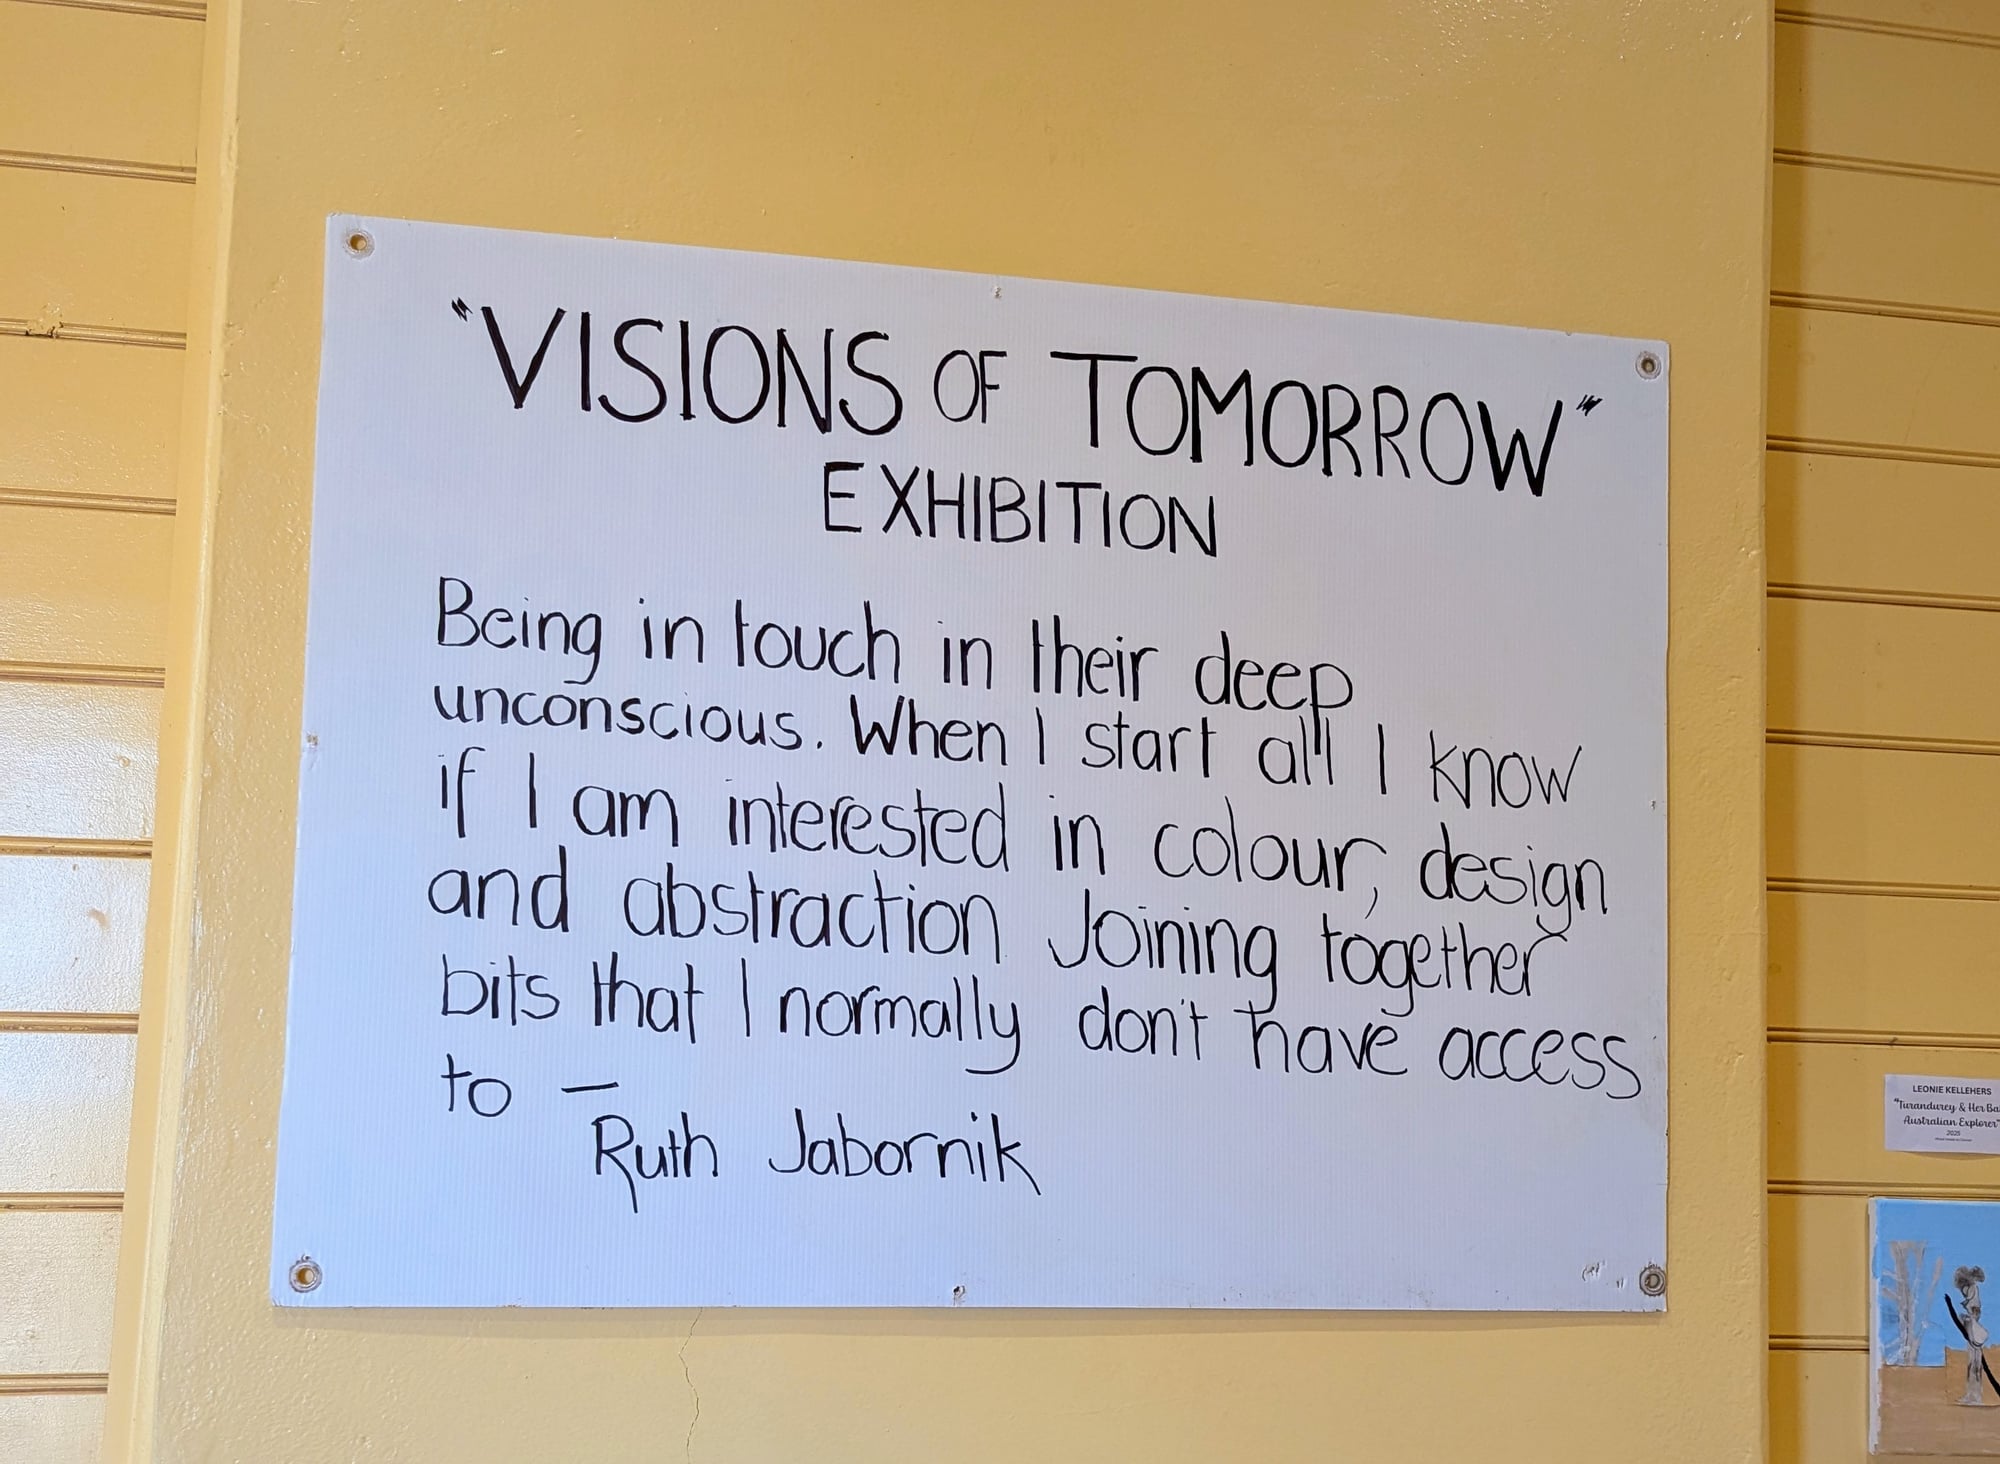 "VISIONS OF TOMORROW"
EXHIBITION
Being in touch in their deep
unconscious. When I start all I know
if I am interested in colour, design
and abstraction Joining together
bits that I normally don't have access
to —
Ruth Jabornik
LEONIE KELLEHERS
"Turandurey & Her Ba
Australian Explorer"
2025